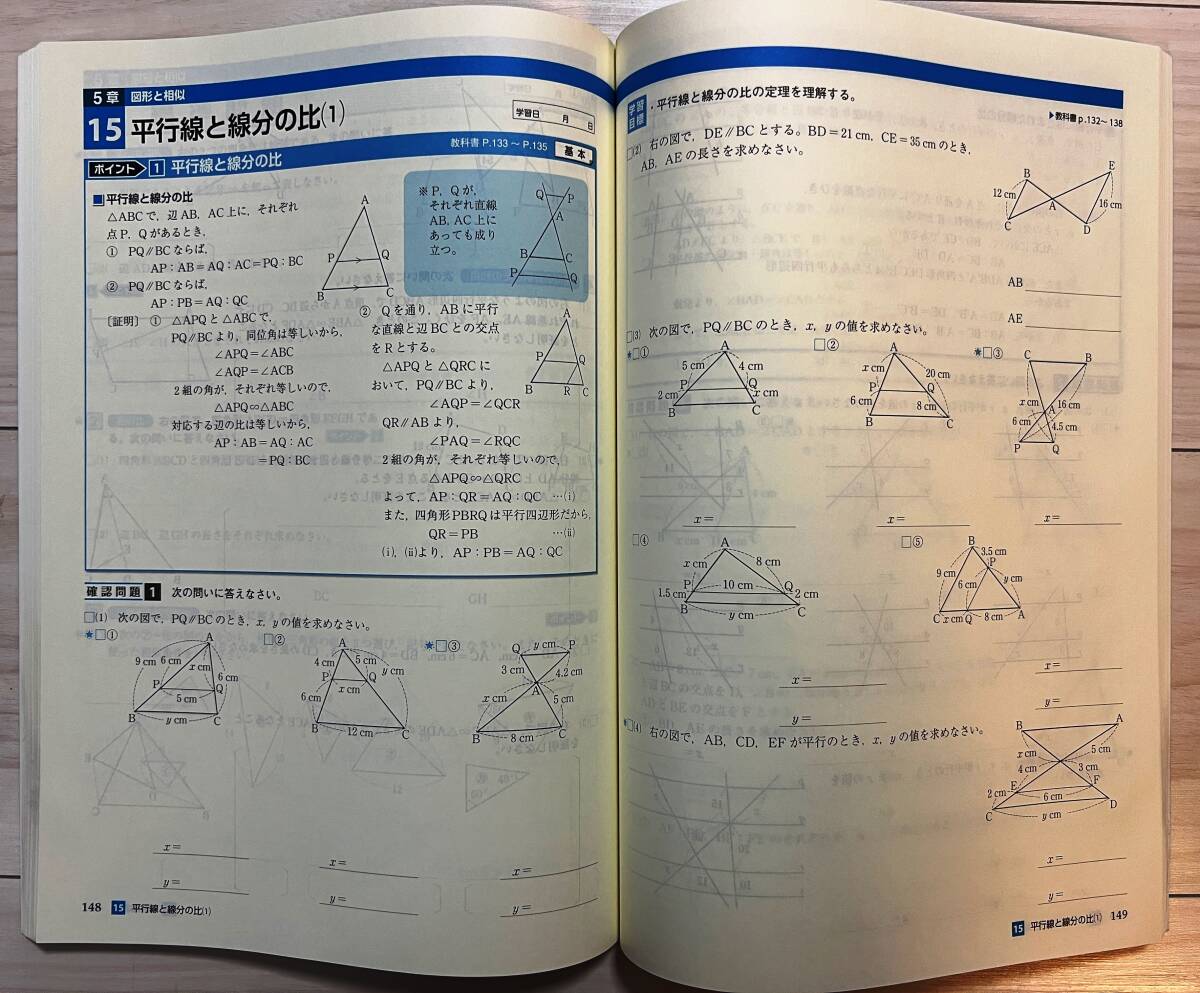 5章 図形と相似
15 平行線と線分の比(1)
学習日 月 日
教科書 P.133～P.135 基本
ポイント 1 平行線と線分の比
■平行線と線分の比
△ABCで，辺AB，AC上に，それぞれ
点P，Qがあるとき，
① PQ∥BCならば，
AP：AB＝AQ：AC＝PQ：BC
② PQ∥BCならば，
AP：PB＝AQ：QC
A
P
Q
B
C
※P，Qが，
それぞれ直線
AB，AC上に
あっても成り
立つ。
Q
P
A
B
C
P
Q
〔証明〕 ① △APQと△ABCで，
PQ∥BCより，同位角は等しいから，
∠APQ＝∠ABC
∠AQP＝∠ACB
2組の角が，それぞれ等しいので，
△APQ∽△ABC
対応する辺の比は等しいから，
AP：AB＝AQ：AC
＝PQ：BC
② Qを通り，ABに平行
な直線と辺BCとの交点
をRとする。
△APQと△QRCに
おいて，PQ∥BCより，
∠AQP＝∠QCR
QR∥ABより，
∠PAQ＝∠RQC
2組の角が，それぞれ等しいので，
△APQ∽△QRC
よって，AP：QR＝AQ：QC …(i)
また，四角形PBRQは平行四辺形だから，
QR＝PB …(ii)
(i)，(ii)より，AP：PB＝AQ：QC
A
P
Q
B
R
C
確認問題 1 次の問いに答えなさい。
□(1) 次の図で，PQ∥BCのとき，x，yの値を求めなさい。
★□①
A
9 cm
6 cm
x cm
6 cm
P
Q
5 cm
B
y cm
C
□②
A
4 cm
5 cm
y cm
P
Q
x cm
6 cm
B
12 cm
C
★□③
y cm
Q
P
3 cm
4.2 cm
A
x cm
5 cm
B
8 cm
C
x＝
y＝
x＝
y＝
x＝
y＝
148 15 平行線と線分の比(1)
学習目標 ・平行線と線分の比の定理を理解する。
▶教科書 p.132～138
□(2) 右の図で，DE∥BCとする。BD＝21 cm，CE＝35 cmのとき，
AB，AEの長さを求めなさい。
E
B
12 cm
A
16 cm
C
D
AB
AE
□(3) 次の図で，PQ∥BCのとき，x，yの値を求めなさい。
★□①
A
5 cm
4 cm
P
Q
2 cm
x cm
B
C
□②
A
x cm
20 cm
P
Q
6 cm
8 cm
B
C
★□③
C
B
x cm
A
16 cm
6 cm
4.5 cm
P
Q
x＝
x＝
x＝
□④
A
x cm
8 cm
P
10 cm
Q
1.5 cm
2 cm
B
y cm
C
□⑤
B
3.5 cm
P
9 cm
6 cm
y cm
C
x cm
Q
8 cm
A
x＝
y＝
x＝
y＝
★□(4) 右の図で，AB，CD，EFが平行のとき，x，yの値を求めなさい。
B
A
x cm
5 cm
4 cm
3 cm
E
F
2 cm
6 cm
C
y cm
D
x＝
y＝
15 平行線と線分の比(1) 149